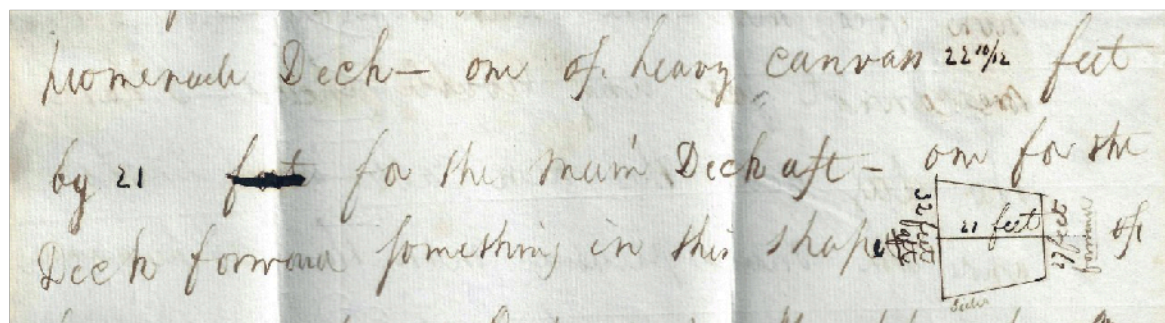 promenade Deck — one of heavy canvass 22 10/12 feet
by 21 feet for the main Deck aft — one for the
Deck forward something in this shape of
32 feet
aft
21 feet
27 feet
forward